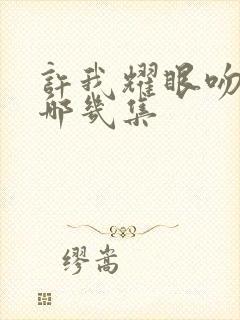 許我耀眼吻
哪幾集
缪嵩